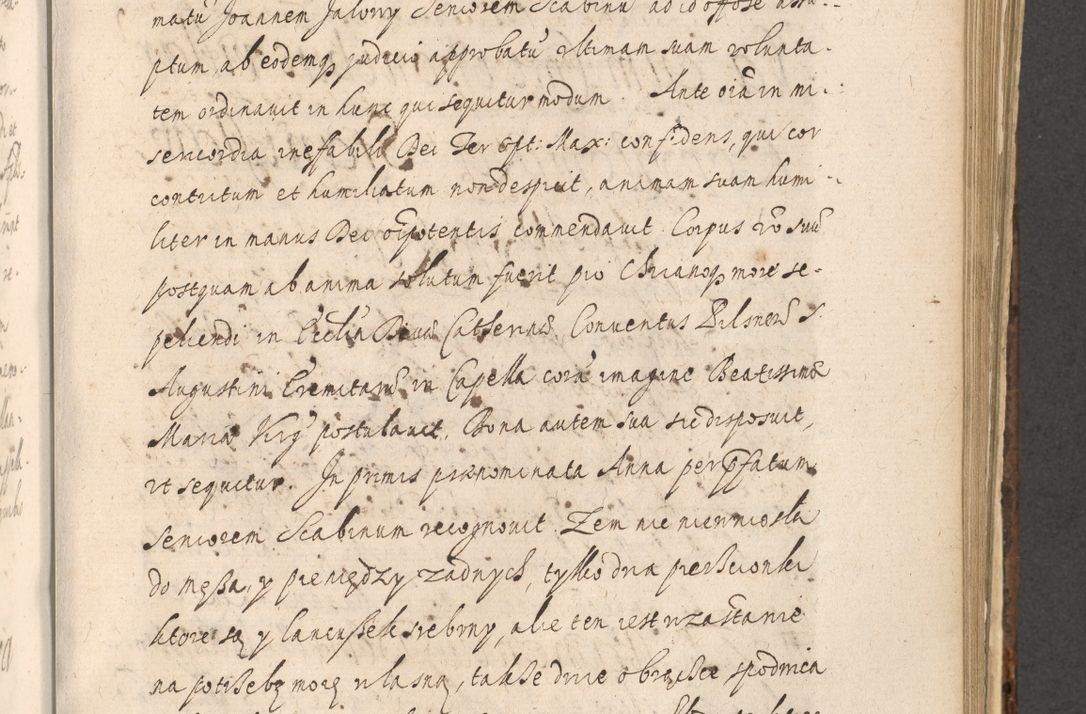 matũ Joannem Jalowy Seniorem Scabinũ ad id offõse assu-
ptum ab eodemq judicio approbatũ vltimam suam volunta-
tem ordinauit in hunc qui sequitur modum. Ante oĩa in mi-
sericordia ineffabili Dei Ter Opt: Max: confidens, qui cor
contritum et humiliatum non despicit, animam suam humi-
liter in manus Dei oĩpotentis commendauit. Corpus võ suũ
postquam ab anima solutum fuerit pio Chrianoq more se-
peliendi in Ecclia Diuæ Catherinæ Conuentus Pilsnen S.
Augustini Eremitarũ in Capella corã imagine Beatissimæ
Mariæ Virg postulauit. Bona autem sua sic disposuit,
vt sequitur. In primis prænominata Anna per pfatum
Seniorem Scabinum recognouit Zem nie niemniosła
do męża, y pieniędzy zadnych, tylko dwa pierscionki
ktore są y łancussek srebrny, ale ten iest w zastawie
na potrzebę moię własną, takße dwie obrączce spodnica